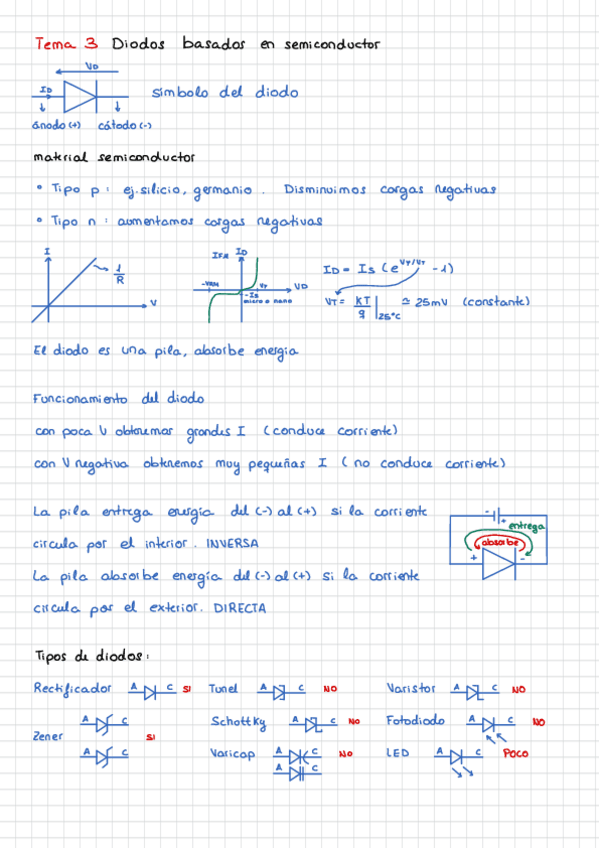 Tema 3 Diodos basados en semiconductor
VD
ID
símbolo del diodo
ánodo (+) cátodo (-)
material semiconductor
• Tipo p: ej. silicio, germanio. Disminuimos cargas negativas
• Tipo n: aumentamos cargas negativas
I
1/R
V
ID
-VRM
Vγ
VD
-Is
micro o nano
ID = Is (e^VD/VT - 1)
VT = KT/q |25°C ≃ 25mV (constante)
El diodo es una pila, absorbe energía
Funcionamiento del diodo
con poca V obtenemar grandes I (conduce corriente)
con V negativa obtenemos muy pequeñas I (no conduce corriente)
La pila entrega energía del (-) al (+) si la corriente
circula por el interior. INVERSA
La pila absorbe energía del (-) al (+) si la corriente
circula por el exterior. DIRECTA
- +
entrega
absorbe
+ -
Tipos de diodos:
Rectificador A C SI Tunel A C NO Varistor A C NO
Zener A C SI Schottky A C NO Fotodiodo A C NO
A C Varicap A C NO LED A C Poco
A C